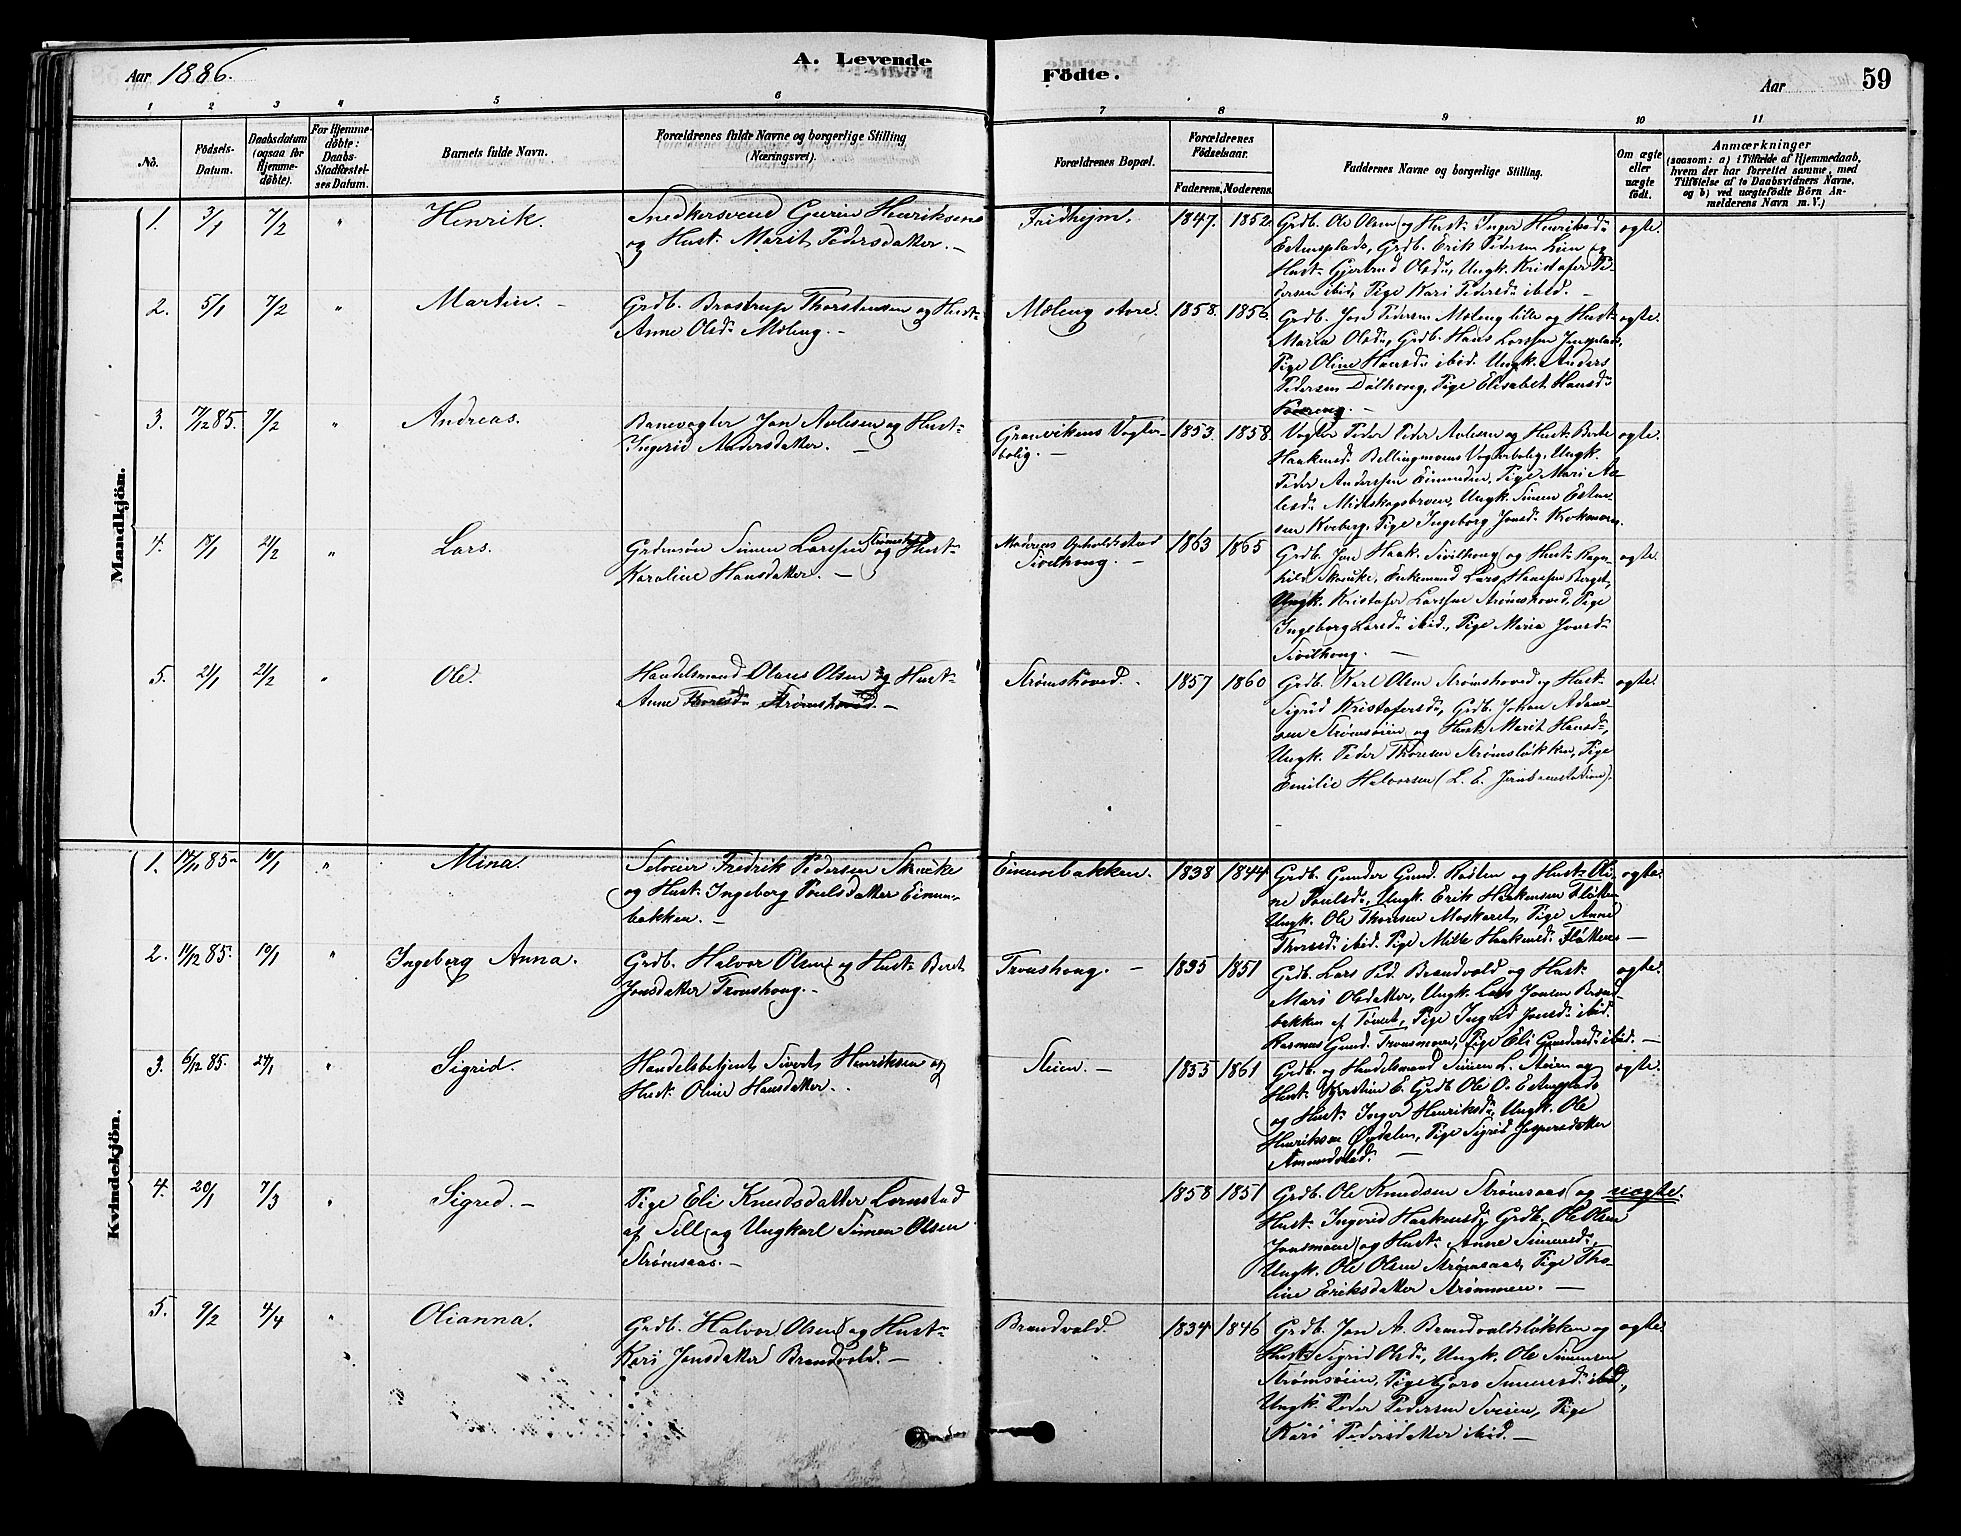 Aar 1886.
A. Levende
Födte.
Aar
59
1
2
3
4
5
6
7
8
9
10
11
No.
Födsels-
Datum.
Daabsdatum
(ogsaa for
Hjemme-
döbte).
For Hjemme-
döbte:
Daabs-
Stadfæstel-
ses Datum.
Barnets fulde Navn.
Forældrenes fulde Navne og borgerlige Stilling
(Næringsvei).
Forældrenes Bopæl.
Forældrenes
Födselsaar.
Faderens. Moderens.
Faddernes Navne og borgerlige Stilling.
Om ægte
eller
uægte
födt.
Anmærkninger
(saasom: a) i Tilfælde af Hjemmedaab,
hvem der har forrettet samme, med
Tilföielse af to Daabsvidners Navne,
og b) ved uægtefödte Börn An-
melderens Navn m. V.)
Mandkjön.
1. 3/1 7/2 " Henrik.
Snedkersvend Gurin Henriksen
og Hust: Marit Pedersdatter. —
Fridhejm. 1847. 1852.
Grdb. Ole Olsen og Hust: Inger Henriksd:
Estensplads, Grdb. Erik Pedersen Lien og
Hust: Gjertrud Olsd:, Ungk. Kristofer Pe-
dersen ibid, Pige Kari Pedersd: ibid. —
egte.
2. 5/1 7/2 " Martin. —
Grdb. Brostrup Thorstensen og Hust:
Anne Olsd: Mæleng. —
Mæleng store. 1858. 1856.
Grdb. Jon Pedersen Mæleng lille og Hust:
Maria Olsd:, Grdb. Hans Larssen Jensplads,
Pige Oline Hansd: ibid. Ungk. Anders
Pedersen Dalhoug, Pige Elisabet Hansd:
egte.
3. 7/12 85. 7/2 " Andreas.
Banevogter Jon Avlesen og Hust:
Ingerid Andersdatter. —
Granvikens Vogter-
bolig. —
1853. 1858.
Vogter Peder Peder Avlesen og Hust: Berte
Haakensd: Bellingmoens Vogterbolig, Ungk.
Peder Anderssen Einunden, Pige Mari Av-
lesd: Midtskogsbroen, Ungk. Simen Esten-
sen Kveberg, Pige Ingeborg Jonsd: Krokmoen.
egte.
4. 17/1 21/2 " Lars.
Grdmsön Simen Larssen Strömshoved og Hust:
Karoline Hansdatter. —
Moderens Opholdsstad
Sivilhoug. —
1863 1865
Grdb. Jon Haak. Sivilhoug og Hust: Ragn-
hild Skancke, Enkemand Lars Hanssen Berget,
Ungk. Kristofer Larssen Strömshoved, Pige
Ingeborg Larsd: ibid., Pige Maria Jonsd:
Sivilhoug. —
egte.
5. 21/1 21/2 " Ole.
Handelsmand Olaus Olsen og Hust:
Anne Thoresd: Strömshoved. —
Strömshoved. 1857 1860
Grdb. Karl Olsen Strömshoved og Hust:
Sigrid Kristofersd:, Grdb. Johan Adam-
sen Strömsöien og Hust: Marit Hansd:,
Ungk. Peder Thoresen Strömsløkken, Pige
Emilie Halvorsen (L. E. Jernbanestation).
egte.
Kvindekjön.
1. 14/11 85. 10/1 " Mina.
Selveier Fredrik Pedersen Skancke
og Hust: Ingeborg Poulsdatter Einun-
bakken. —
Einunbakken. 1838 1844
Grdb. Gunder Gund. Røsten og Hust: Oli-
ne Poulsd:, Ungk. Erik Haakensen Fløtten
Ungk. Ole Thoresen Moskaret, Pige Anne
Thoresd: ibid. Pige Mille Haakensd: Fløtten. —
egte.
2. 14/12 85. 10/1 " Ingeborg Anna.
Grdb. Halvor Olsen og Hust: Beret
Jonsdatter Tronshoug. —
Tronshoug. — 1835 1851
Grdb. Lars Ped. Brandvold og Hust:
Mari Olsdatter, Ungk. Lars Jonsen Brænd-
bakken af Tønset, Pige Ingrid Jonsd: ibid.
Rasmus Gund. Tronsmoen, Pige Eli Gundersd: ibid. —
egte.
3. 6/12 85. 24/1 " Sigrid.
Handelsbetjent Sivert Henriksen og
Hust: Oline Hansdatter. .
Steien. — 1855 1861
Grdb. og Handelsmand Simen L. Steien og
Hust: Kjerstine E. Grdb Ole O. Estensplads
og Hust: Inger Henriksd:, Ungk. Ole
Henriksen Øvdalen, Pige Sigrid Jespersdatter
—
egte.
4. 20/1 7/3 " Sigred. —
Pige Eli Knudsdatter Lornstad
af Sell og Ungkarl Simen Olsen
Strömsaas. —
1858 1851
Grdb. Ole Knudsen Strömsaas og
Hust: Ingerid Haakensd:, Grdb. Ole Olsen
Jonsmoen og Hust: Anne Simensd:,
Ungk. Ole Olsen Strömsaas, Pige Tho-
line Eriksdatter Strömmen. —
uægte.
5. 9/2 4/4 " Olianna.
Grdb. Halvor Olsen og Hust:
Kari Jonsdatter Brandvold. —
Brandvold. 1834 1846
Grdb. Jon A. Brandvoldsløkken og
Hust: Sigrid Olsd:, Ungk. Ole Simensen
Strömsöien, Pige Gjøro Simensd: ibid,
Ungk: Peder Pedersen Sveien, Pige
Kari Pedersdatter ibid. —
egte.